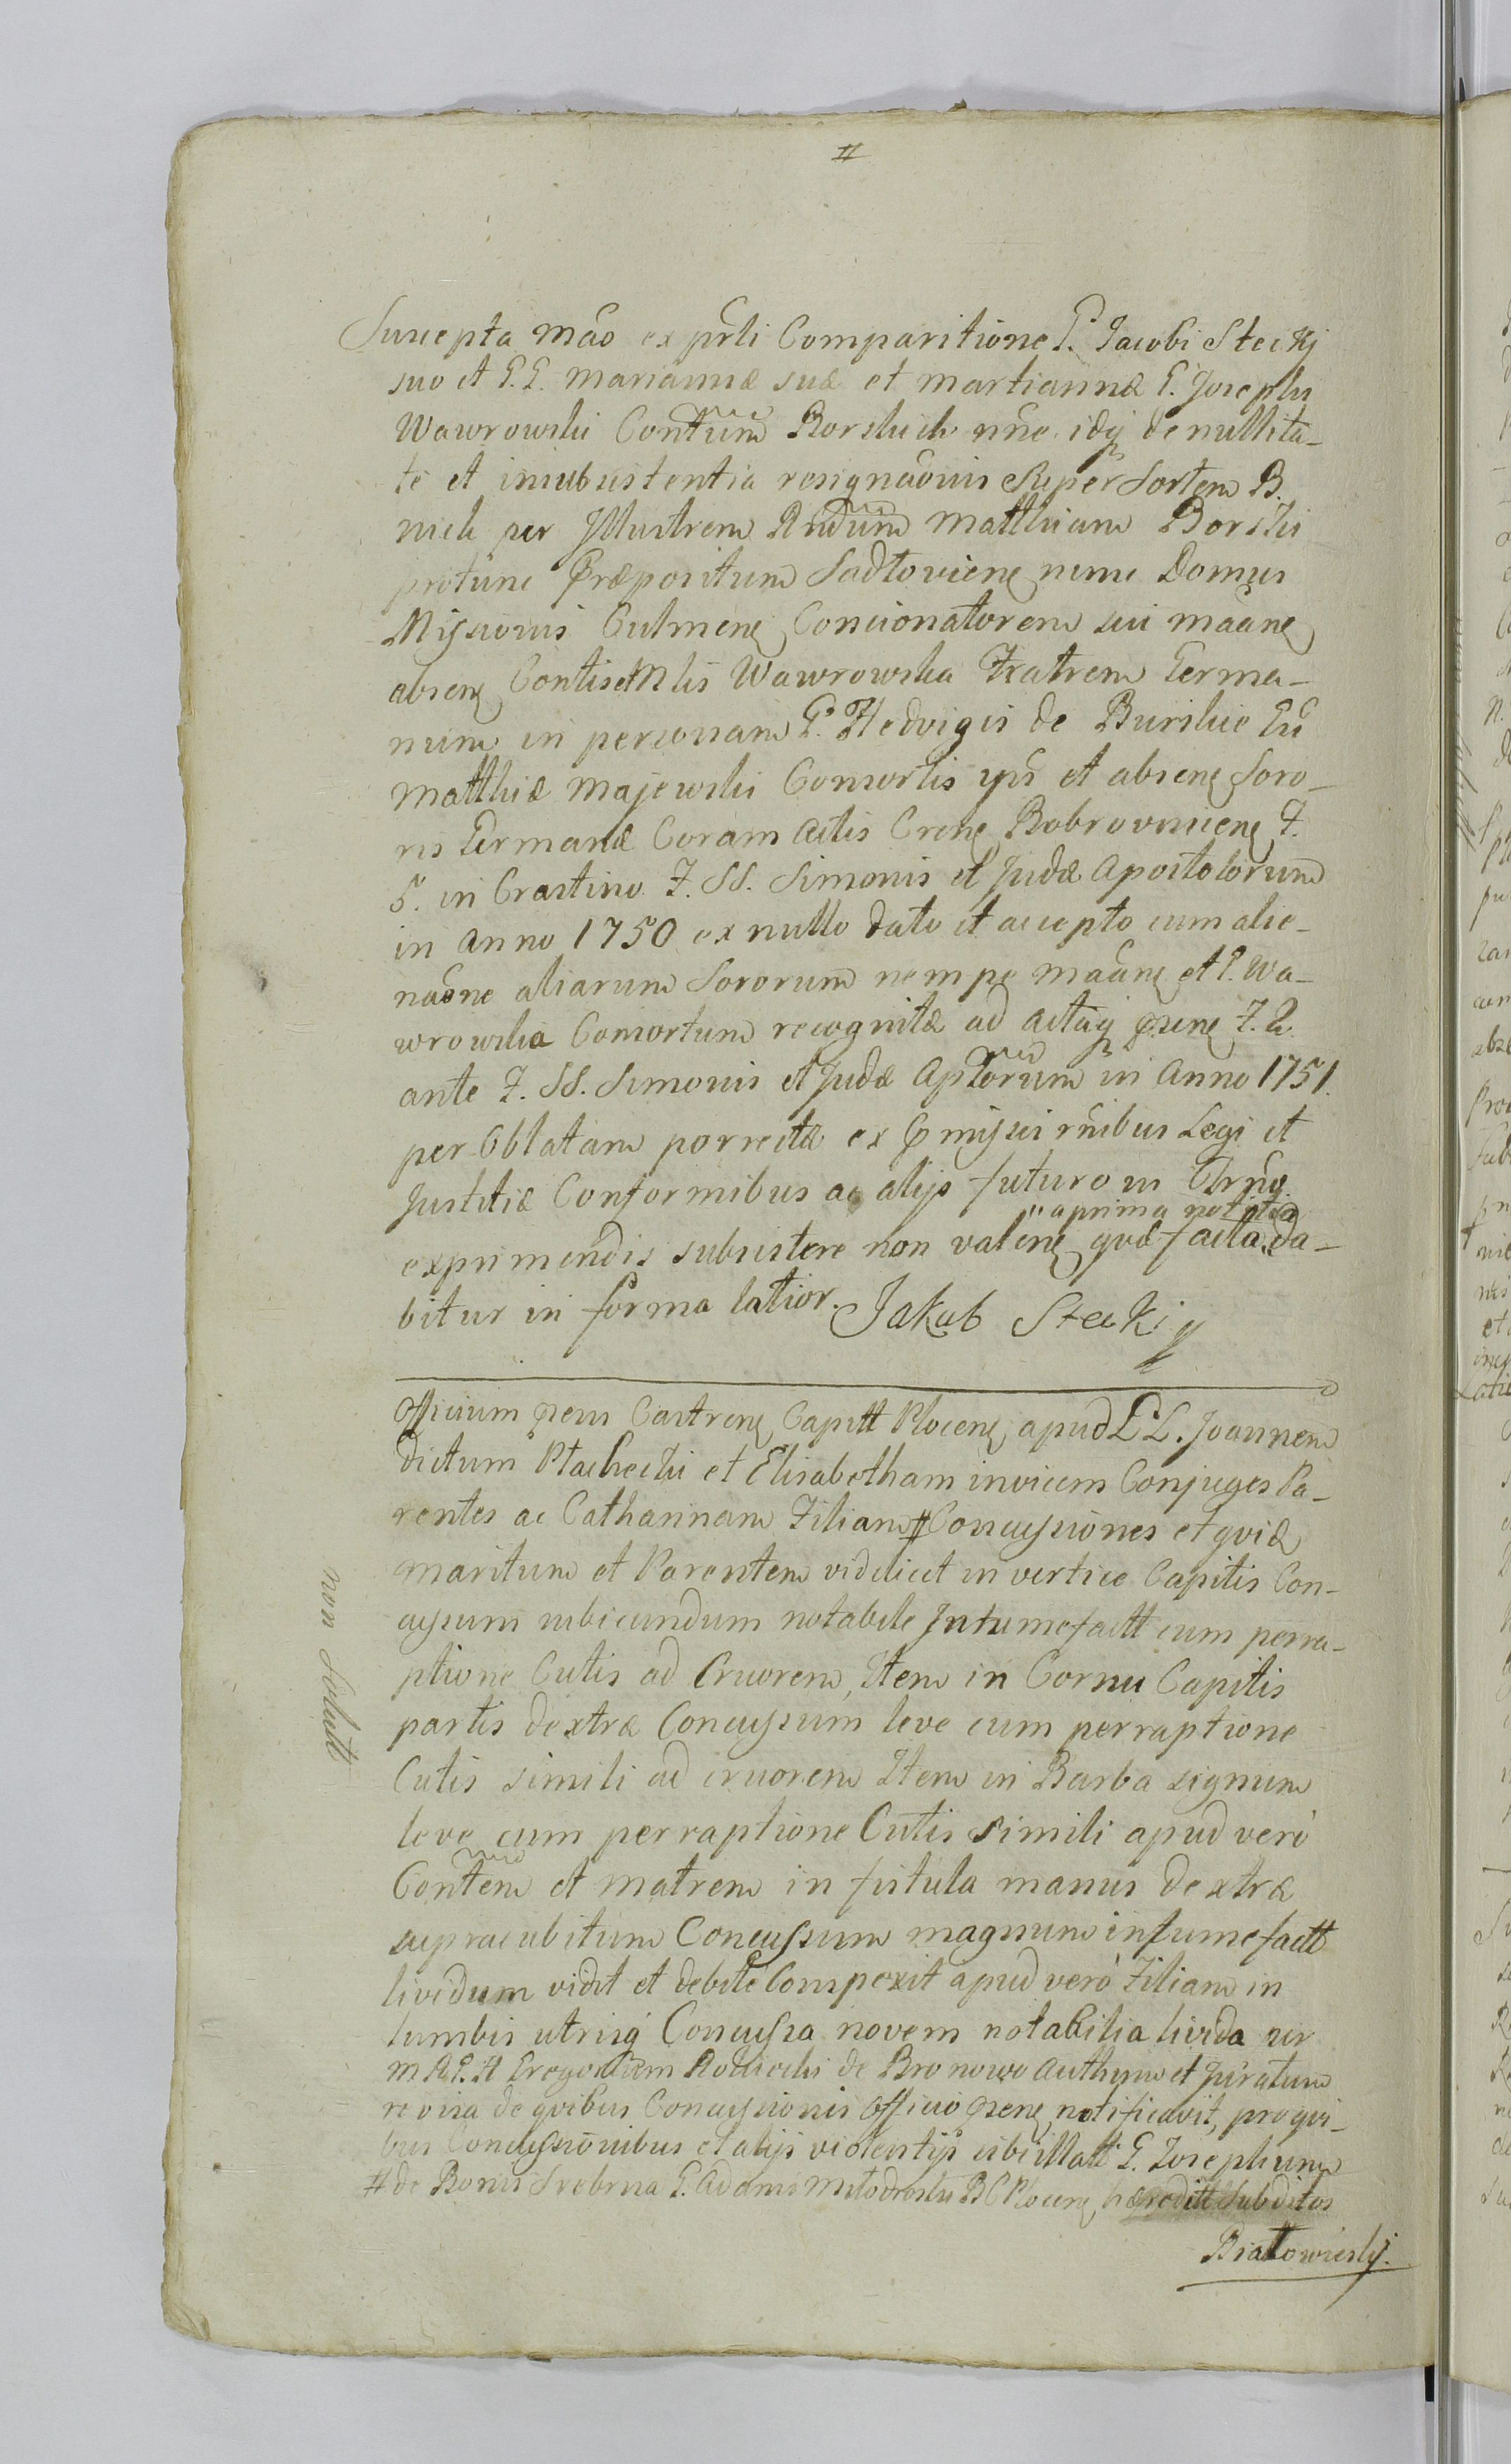 #
Suscepta mão ex prśli Comparitione G. Jacobi Steckj
suo et G.G. Mariannæ suæ et Martiannæ G. Josephi
Wawrowski Contūm Borskich nñe idq de nullita-
te et insubsistentia resignaõnis super Sortem B.
nich per Jllustrem Rndūm Matthiam Borski
protunc Præpositum Sadłoviens nunc Domus
Missionis Culmens Concionatorem sui maans
absens Contis et Mlis Wawrowska Fratrem Germa-
num in personam G. Hedvigis de Burskie Gñ
Matthiæ Majewski Consortis yñs et absens Soro-
ris Germanæ Coram Actis Crens Bobrovniciens F.
5. in Crastino F. SS. Simonis et Judæ Apostolorum
in Anno 1750 ex nullo dato et accepto cum alie-
naõne aliarum Sororum nempe maans et G. Wa-
wrowska Consortum recognitæ ad Actaq præns F. 2.
ante F. SS. Simonis et Judæ Aplorum in Anno 1751.
per Oblatam porrectæ ex præmissi rñibus Legi et
Justitiæ Conformibus ac alijs futuro in Trño
" a prima notitia
exprimendis subsistere non valens quæ facta da-
bitur in forma latior. Jakub Stecki
Officium præns Castrens Capitt Plocens apud LL. Joannem
dictum Ptachecki et Elisabetham invicem Conjuges Pa-
rentes ac Catharinam Filiam # Concussiones et quiæ
maritum et Parentem videlicet in vertice Capitis Con-
cussum rubicundum notabile Jntumefactt cum perra-
ptione Cutis ad Cruorem, Item in Cornu Capitis
partis dextræ Concussum leve cum perraptione
Cutis simili ad cruorem Item in Barba signum
leve cum perraptione Cutis simili apud verò
Contem et matrem in fistula manus dextræ
supra cubitum Concussum magnum intumefactt
lividum vidit et debite Compexit apud verò Filiam in
lumbis utrisq Concussa novem notabilia livida per
M.R.G.H Gregorium Rodzecki de Bronowo Authum et Juratum
revisa de quibus Concussionis Officio præns notificavit, pro qui-
bus Concussionibus et alijs violentijs sibi illatt G. Josephum
# de Bonis Srebrna G. Adami Młodroski BC Plocens hæreditt Subditos
Białowieskj.
non Solutt